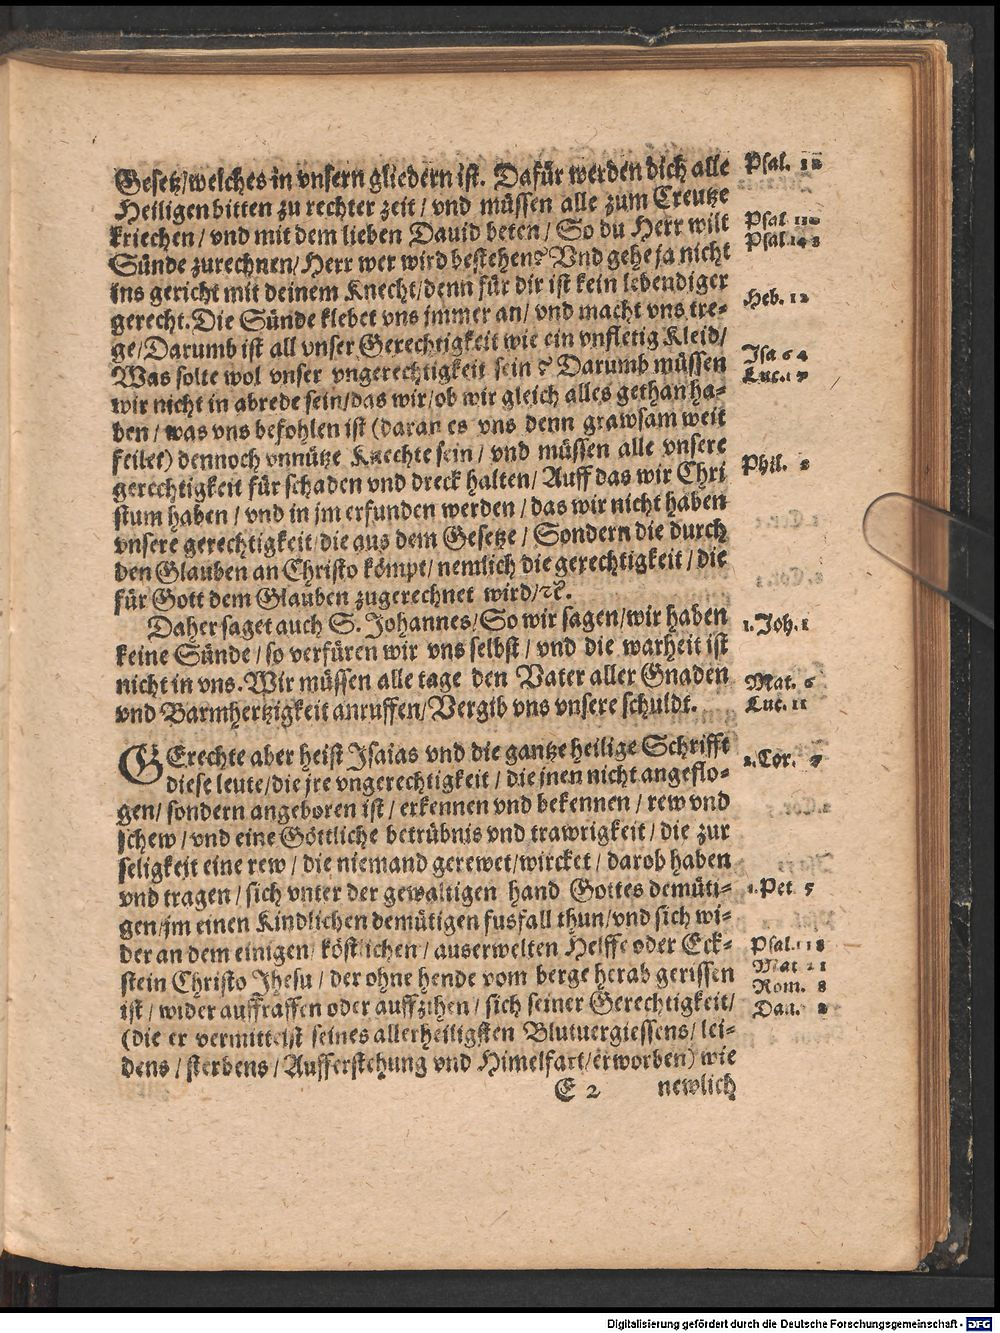 Gesetz/welches in vnsern gliedern ist. Dafür werden dich alle
Heiligen bitten zu rechter zeit / vnd müssen alle zum Creutze
kriechen / vnd mit dem lieben Dauid beten / So du Herr wilt
Sünde zurechnen/Herr wer wird bestehen? Vnd gehe ja nicht
ins gericht mit deinem Knecht/denn für dir ist kein lebendiger
gerecht. Die Sünde klebet vns jmmer an/ vnd macht vns tre-
ge/Darumb ist all vnser Gerechtigkeit wie ein vnfletig Kleid/
Was solte wol vnser vngerechtigkeit sein? Darumb müssen
wir nicht in abrede sein/das wir/ob wir gleich alles gethan ha-
ben / was vns befohlen ist (daran es vns denn grawsam weit
feilet) dennoch vnnütze Knechte sein / vnd müssen alle vnsere
gerechtigkeit für schaden vnd dreck halten/ Auff das wir Chri
stum haben / vnd in jm erfunden werden / das wir nicht haben
vnsere gerechtigkeit/die aus dem Gesetze / Sondern die durch
den Glauben an Christo kömpt/ nemlich die gerechtigkeit / die
für Gott dem Glauben zugerechnet wird/ꝛc.
Daher saget auch S. Johannes/So wir sagen/wir haben
keine Sünde / so verfüren wir vns selbst / vnd die warheit ist
nicht in vns. Wir müssen alle tage den Vater aller Gnaden
vnd Barmhertzigkeit anruffen/Vergib vns vnsere schuldt.
GErechte aber heist Isaias vnd die gantze heilige Schrifft
diese leute/die jre vngerechtigkeit / die jnen nicht angeflo-
gen/ sondern angeboren ist / erkennen vnd bekennen / rew vnd
schew / vnd eine Göttliche betrübnis vnd trawrigkeit / die zur
seligkeit eine rew / die niemand gerewet/wircket / darob haben
vnd tragen / sich vnter der gewaltigen hand Gottes demüti-
gen/jm einen Kindlichen demütigen fusfall thun/vnd sich wi-
der an dem einigen/ köstlichen / auserwelten Helffe oder Eck-
stein Christo Jhesu / der ohne hende vom berge herab gerissen
ist / wider auffraffen oder auffzihen / sich seiner Gerechtigkeit/
(die er vermittelst seines allerheiligsten Blutuergiessens/ lei-
dens / sterbens / Aufferstehung vnd Himelfart/erworben) wie
E 2 newlich
Psal.
Psal
Psal.143
Heb. 12
Isa 64
Luc.17
Phil.
1. Joh. 1
Mat. 6
Luc. 11
2. Cor. 7
1. Pet 5
Psal. 118
Mat 21
Rom. 8
Dan. 2
Digitalisierung gefördert durch die Deutsche Forschungsgemeinschaft - DFG